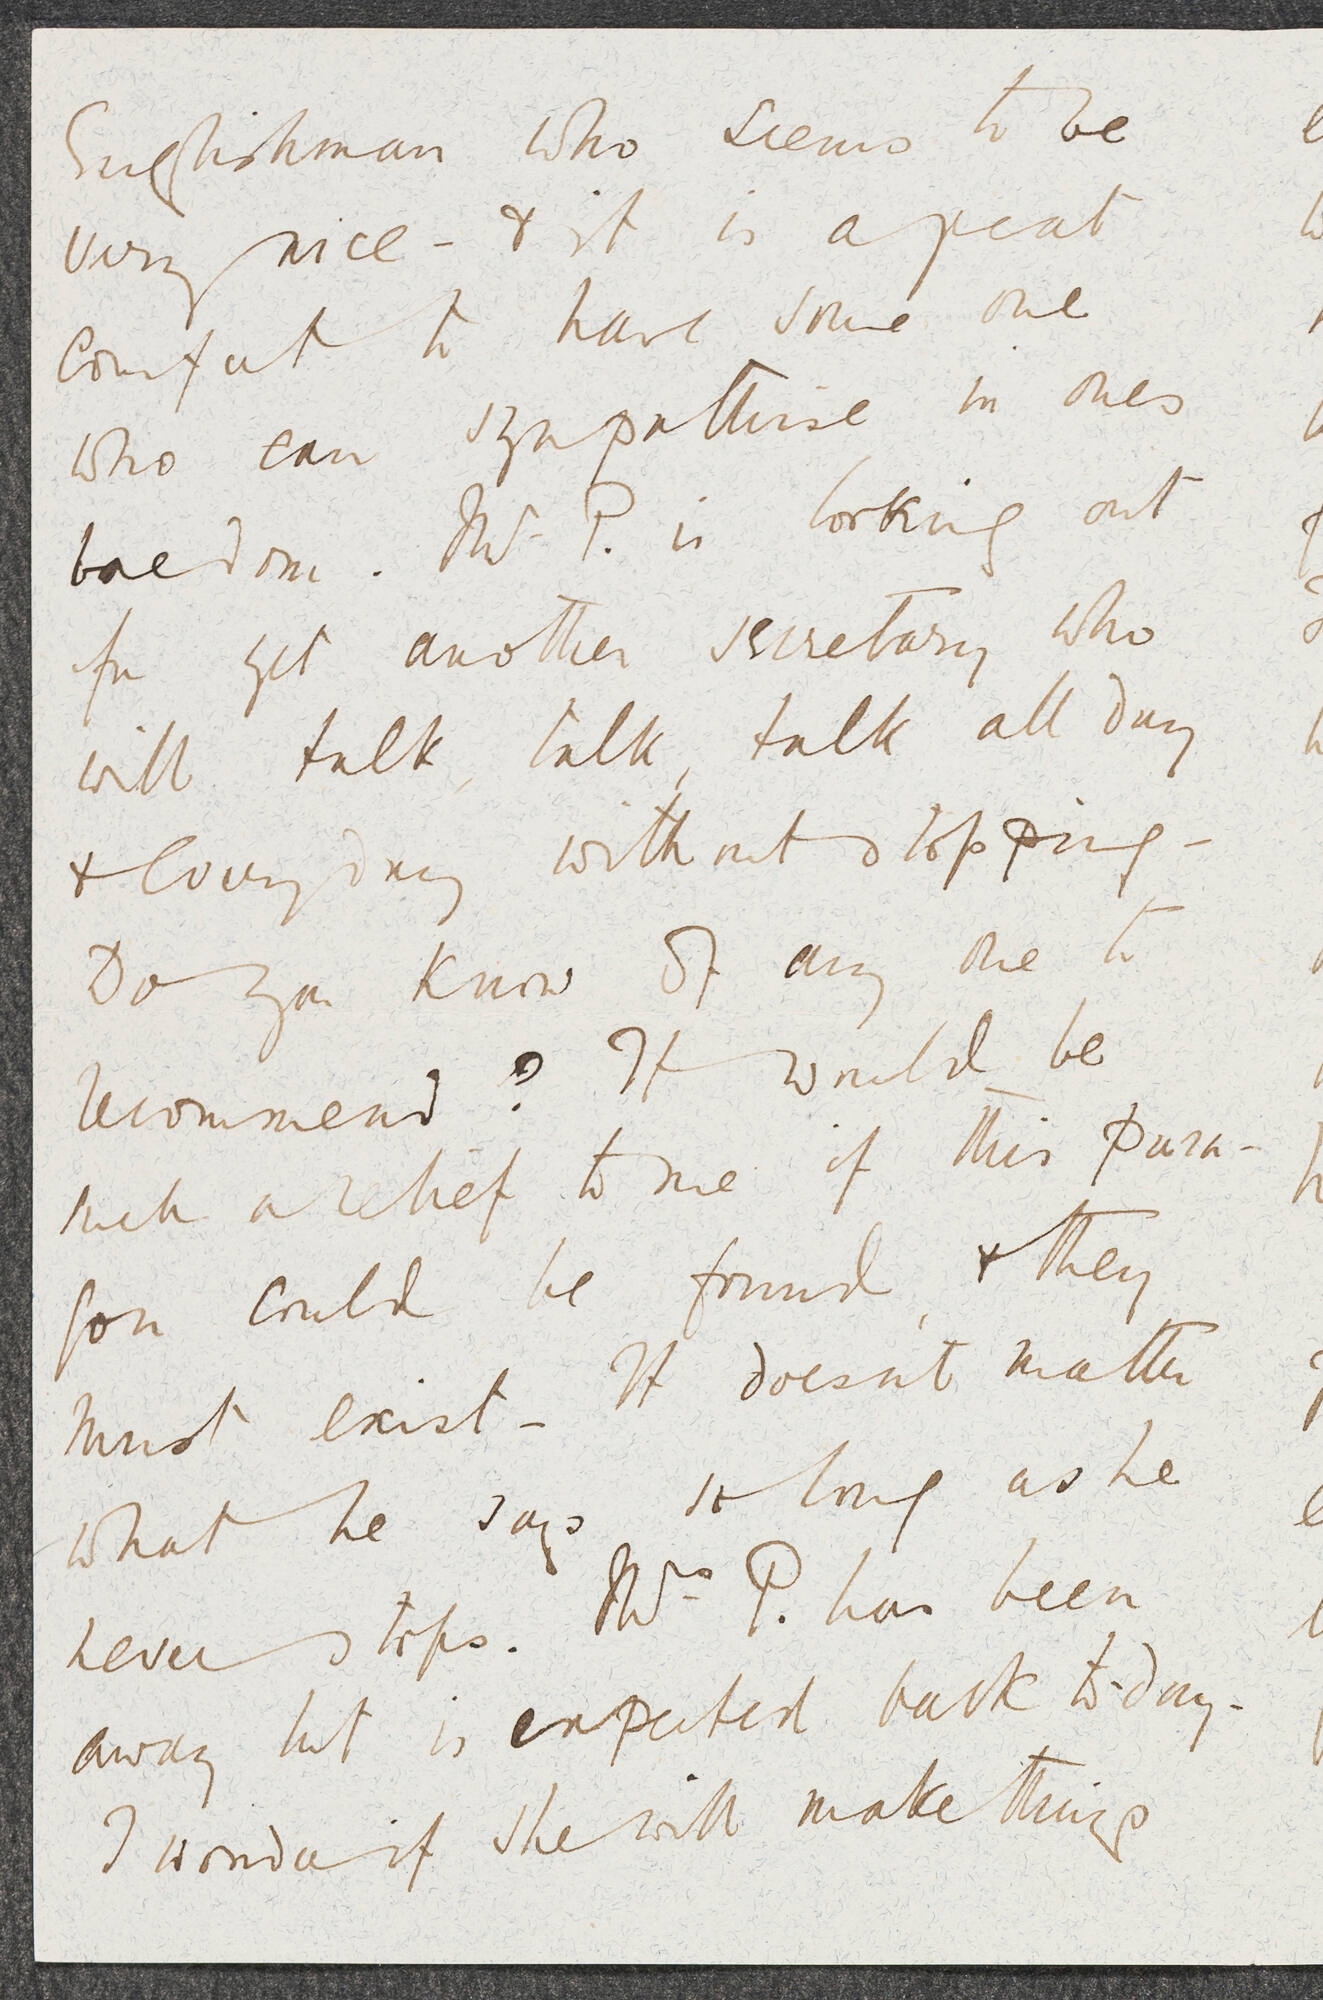 Englishman who seems to be
very nice - & it is a great
comfort to have some one
who can sympathise in ones
boredom. Mr. P. is looking out
for yet another secretary who
will talk, talk, talk all day
& every day without stopping -
Do you know of any one to
recommend? It would be
such a relief to me if this para-
gon could be found, & they
must exist - It doesn't matter
what he says so long as he
never stops. Mrs. P. has been
away but is expected back to-day -
I wonder if she will make things